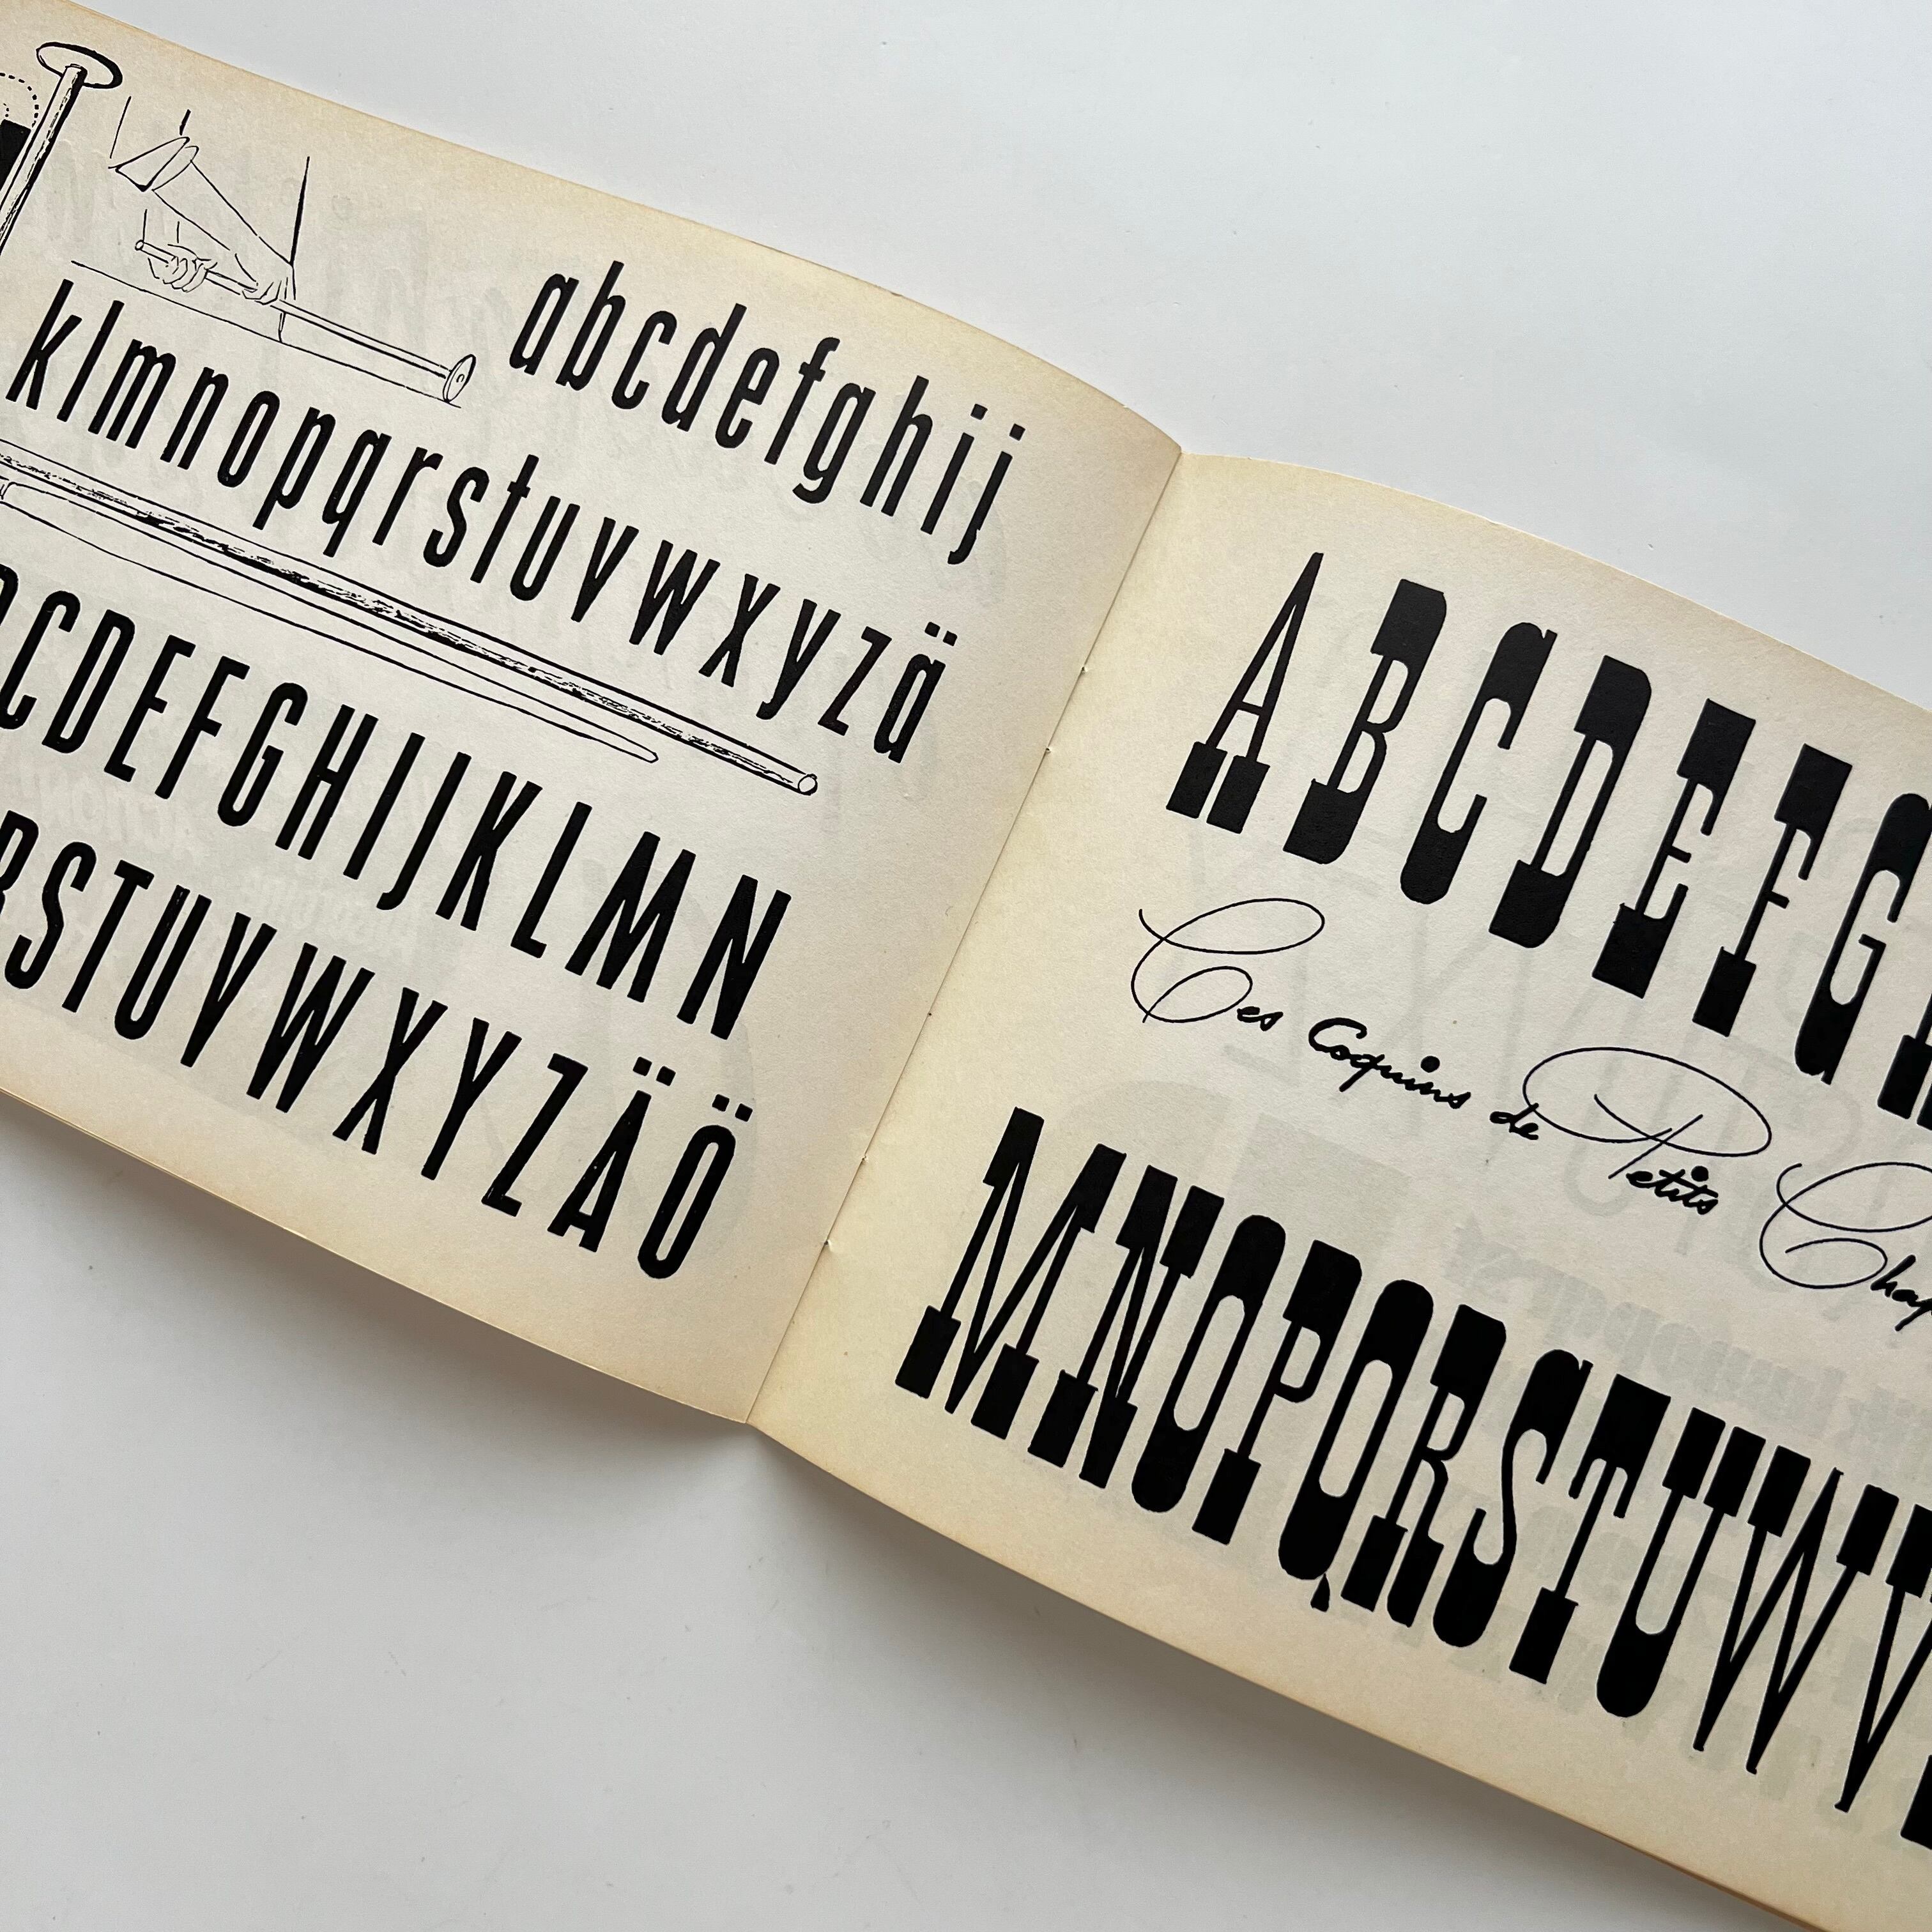 abcdefghij
klmnopqrstuvwxyzä
CDEFGHIJKLMN
RSTUVWXYZÄÖ
ABCDEFG
Ces Coquins de Petits Chap
MNOPQRSTUWV